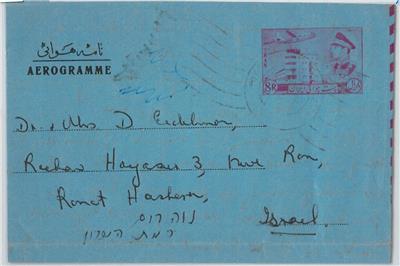 نامه هوائی
AEROGRAMME
IRAN
8R
Dr. & Mrs D
Rechov Hayasur 3, Neve Ron,
Ramat Hasharon,
Israel.
נוה רום
רמת השרון